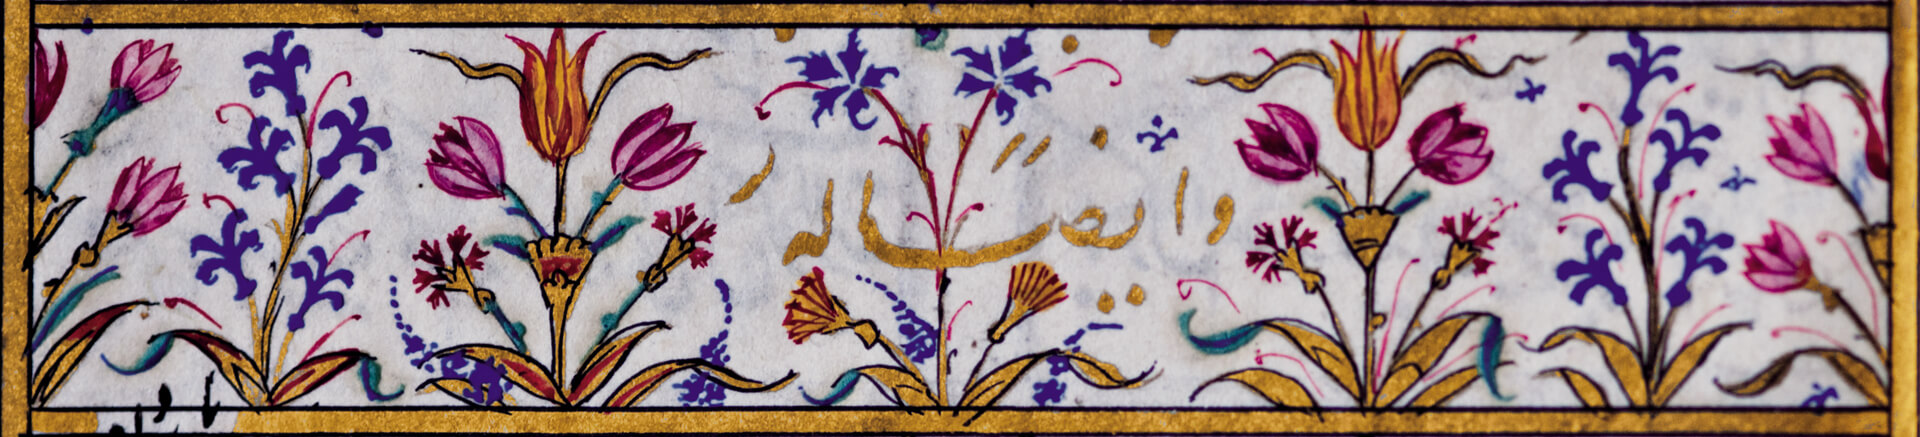 وایضاله